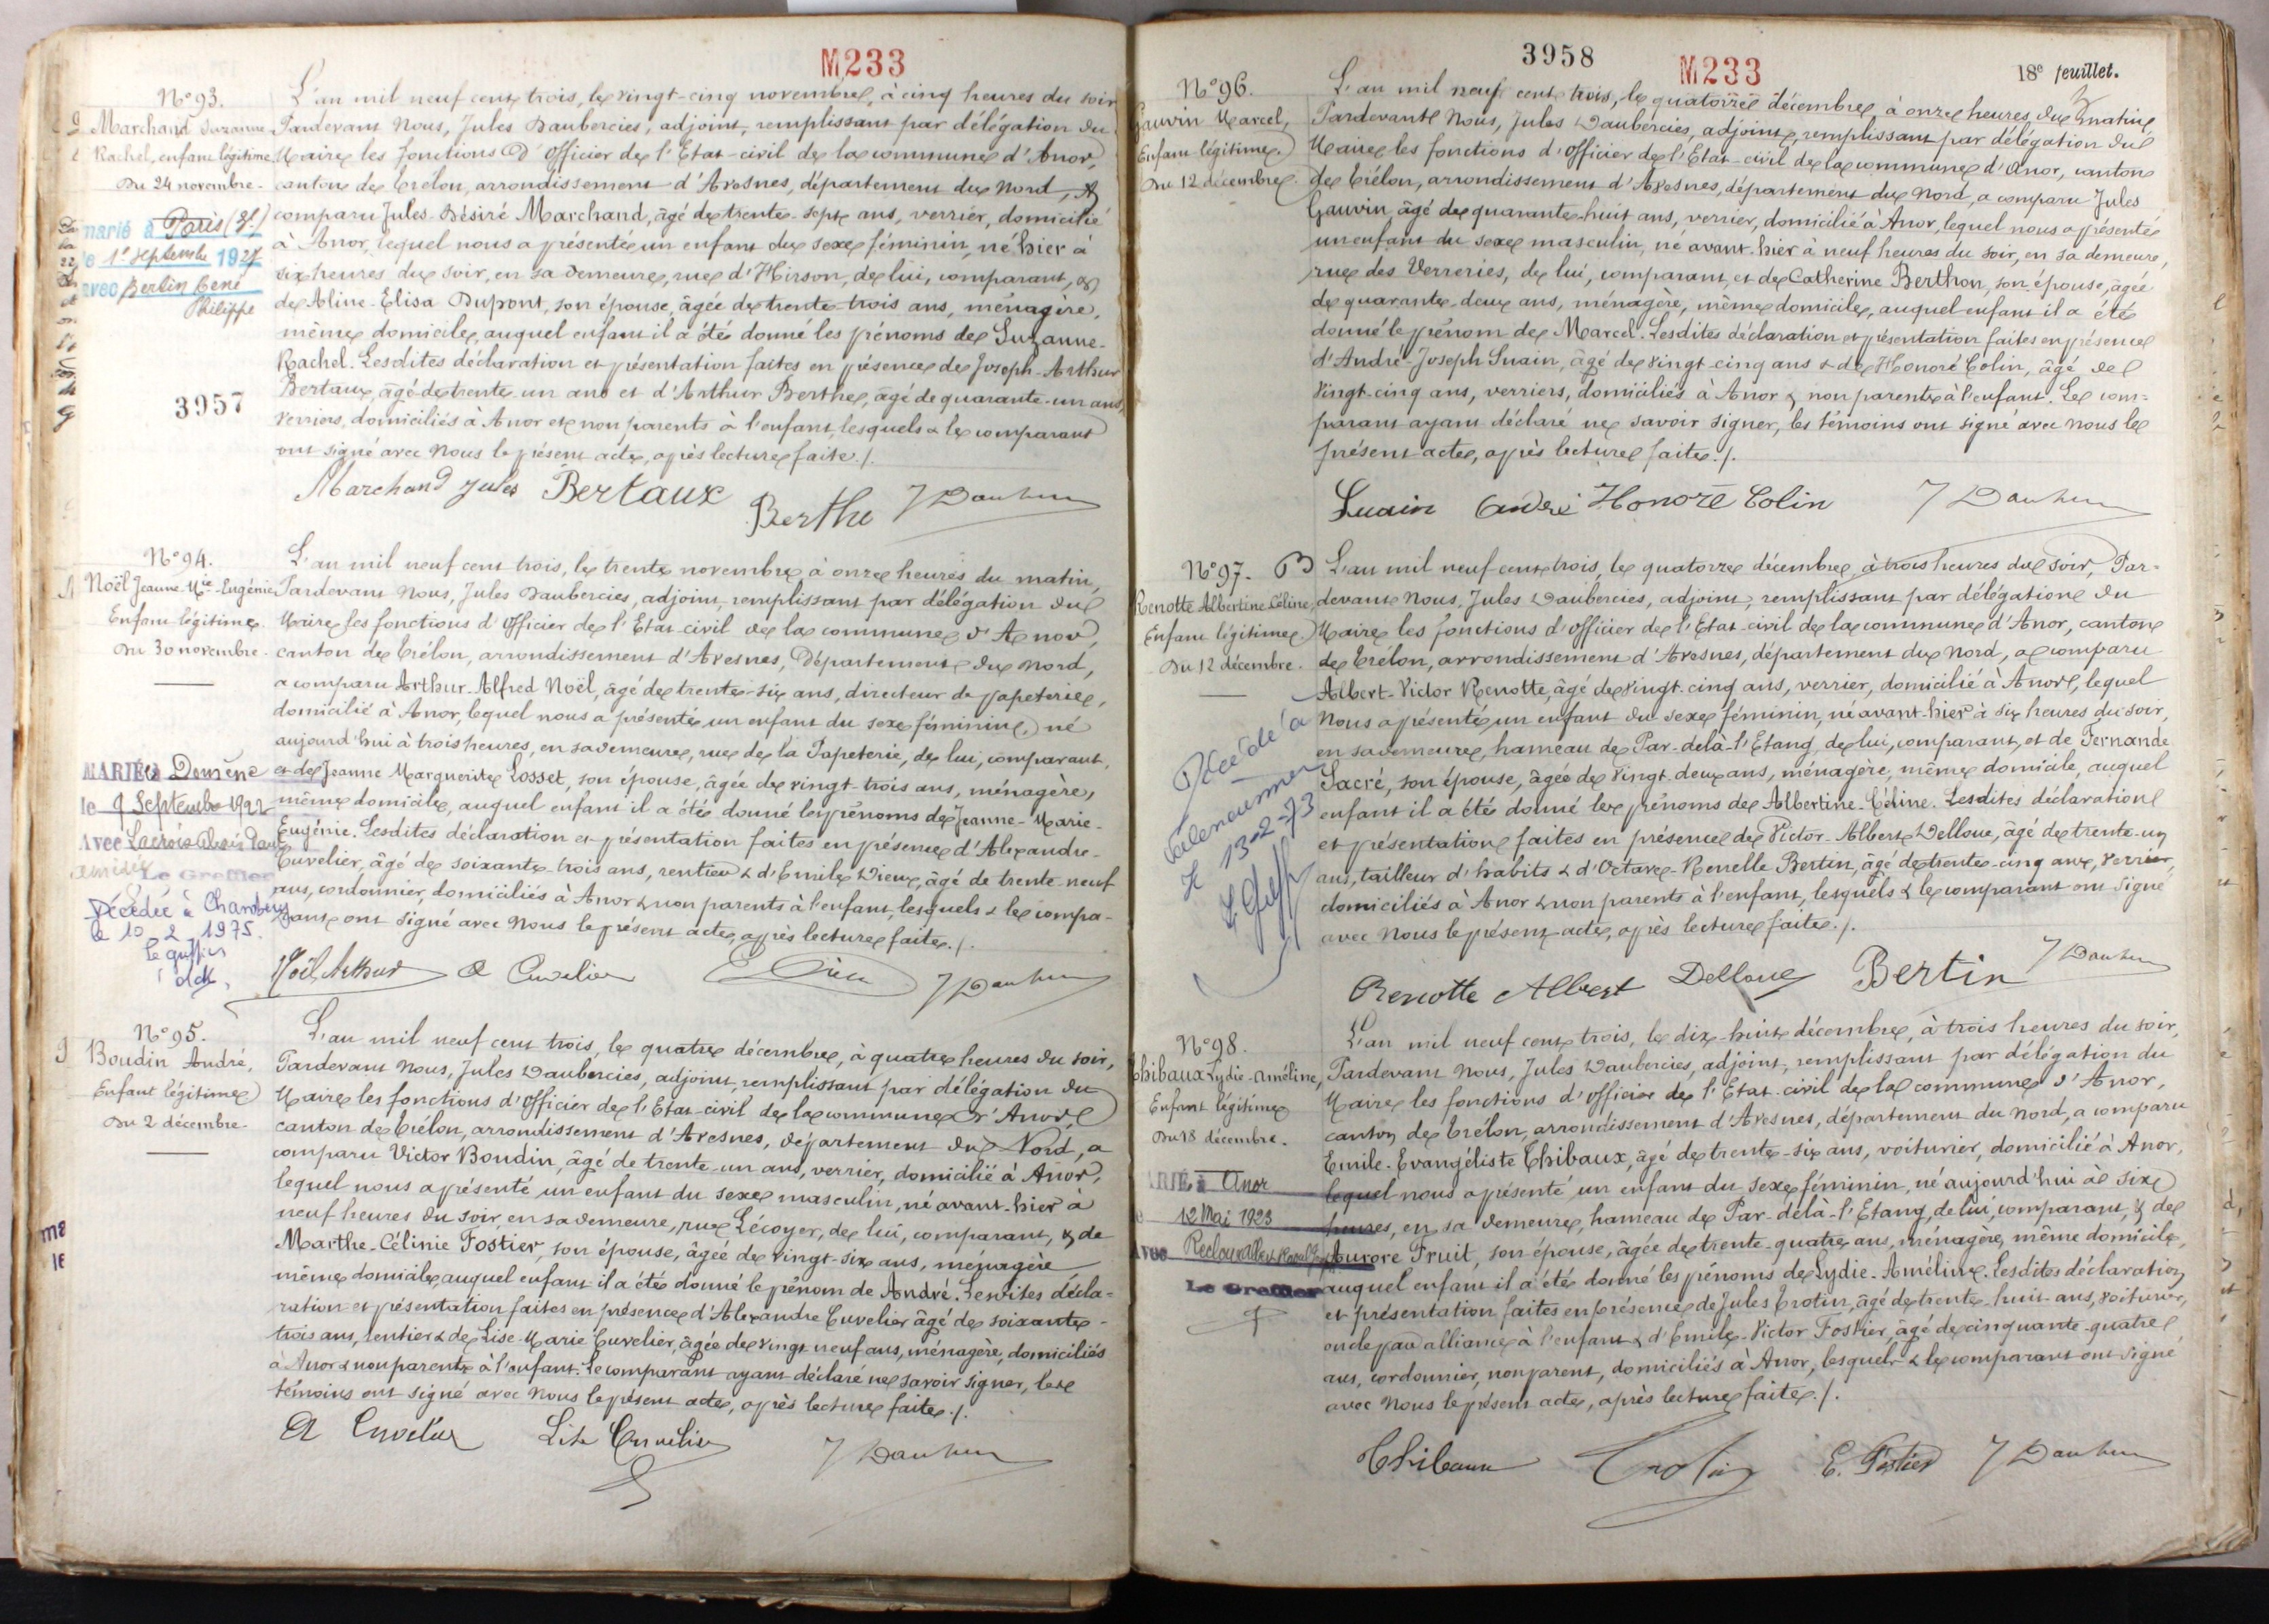 M233
N° 93.
Marchand Suzanne
Rachel, enfant légitime
Du 24 novembre.
marié à Paris (8e)
le 1er septembre 1927
avec Bertin René
Philippe
3957
L'an mil neuf cent trois, le vingt-cinq novembre, à cinq heures du soir
Pardevant Nous, Jules Daubercies, adjoint, remplissant par délégation du
Maire les fonctions d'Officier de l'Etat-civil de la commune d'Anor,
canton de Trélon, arrondissement d'Avesnes, département du Nord, a
comparu Jules-Désiré Marchand, âgé de trente-sept ans, verrier, domicilié
à Anor, lequel nous a présenté un enfant du sexe féminin, né hier à
six heures du soir, en sa demeure, rue d'Hirson, de lui, comparant, &
de Aline-Elisa Dupont, son épouse, âgée de trente-trois ans, ménagère,
même domicile, auquel enfant il a été donné les prénoms de Suzanne-
Rachel. Lesdites déclaration et présentation faites en présence de Joseph-Arthur
Bertaux, âgé de trente-un ans et d'Arthur Berthe, âgé de quarante-un ans,
verriers, domiciliés à Anor et non parents à l'enfant, lesquels & le comparant
ont signé avec Nous le présent acte, après lecture faite ./.
Marchand Jules Bertaux
Berthe J Dauber
N° 94.
Noël Jeanne-Mie-Eugénie
Enfant légitime
Du 30 novembre.
MARIÉE à Domène
le 9 Septembre 1922
Avec Lacroix
Le Greffier
Décédée à Chambéry
le 10 2 1975.
le greffier
L'an mil neuf cent trois, le trente novembre à onze heures du matin,
Pardevant Nous, Jules Daubercies, adjoint, remplissant par délégation du
Maire les fonctions d'Officier de l'Etat-civil de la commune d'Anor,
canton de Trélon, arrondissement d'Avesnes, Département du Nord,
a comparu Arthur-Alfred Noël, âgé de trente-six ans, directeur de papeterie,
domicilié à Anor, lequel nous a présenté un enfant du sexe féminin, né
aujourd'hui à trois heures, en sa demeure, rue de la Papeterie, de lui, comparant,
et de Jeanne Marguerite Losset, son épouse, âgée de vingt trois ans, ménagère,
même domicile, auquel enfant il a été donné les prénoms de Jeanne-Marie-
Eugénie. Lesdites déclaration et présentation faites en présence d'Alexandre
Cuvelier, âgé de soixante-trois ans, rentier & d'Emile Dieu, âgé de trente-neuf
ans, cordonnier, domiciliés à Anor & non parents à l'enfant, lesquels & le compa-
rant ont signé avec Nous le présent acte, après lecture faite ./.
Noël Arthur A Cuvelier E Dieu J Dauber
N° 95.
Boudin André,
Enfant légitime
Du 2 décembre.
L'an mil neuf cent trois, le quatre décembre, à quatre heures du soir,
Pardevant Nous, Jules Daubercies, adjoint, remplissant par délégation du
Maire les fonctions d'Officier de l'Etat-civil de la commune d'Anor,
canton de Trélon, arrondissement d'Avesnes, département du Nord, a
comparu Victor Boudin, âgé de trente-un ans, verrier, domicilié à Anor,
lequel nous a présenté un enfant du sexe masculin, né avant-hier à
neuf heures du soir, en sa demeure, rue Lécoyer, de lui, comparant, & de
Marthe-Célinie Fostier, son épouse, âgée de vingt-six ans, ménagère
même domicile, auquel enfant il a été donné le prénom de André. Lesdites décla=
ration et présentation faites en présence d'Alexandre Cuvelier âgé de soixante-
trois ans, rentier & de Lise-Marie Cuvelier, âgée de vingt neuf ans, ménagère, domiciliés
à Anor & non parents à l'enfant. Le comparant ayant déclaré ne savoir signer, les
témoins ont signé avec Nous le présent acte, après lecture faite ./.
A Cuvelier Lise Cuvelier J Dauber
3958
M233
18e feuillet.
N° 96.
Gauvin Marcel,
Enfant légitime
Du 12 décembre.
L'an mil neuf cent trois, le quatorze décembre, à onze heures du matin
Pardevant Nous, Jules Daubercies, adjoint, remplissant par délégation du
Maire les fonctions d'Officier de l'Etat-civil de la commune d'Anor, canton
de Trélon, arrondissement d'Avesnes, département du Nord, a comparu Jules
Gauvin, âgé de quarante-huit ans, verrier, domicilié à Anor, lequel nous a présenté
un enfant du sexe masculin, né avant-hier à neuf heures du soir, en sa demeure,
rue des Verreries, de lui, comparant, et de Catherine Berthon, son épouse, âgée
de quarante-deux ans, ménagère, même domicile, auquel enfant il a été
donné le prénom de Marcel. Lesdites déclaration et présentation faites en présence
d'André-Joseph Suain, âgé de vingt-cinq ans & de Honoré Colin, âgé de
vingt-cinq ans, verriers, domiciliés à Anor & non parents à l'enfant. Le com=
parant ayant déclaré ne savoir signer, les témoins ont signé avec Nous le
présent acte, après lecture faite ./.
Suain André Honoré Colin J Dauber
N° 97.
Renotte Albertine-Céline,
Enfant légitime
Du 12 décembre.
Décédé à
le 13-2-73
L'an mil neuf cent trois, le quatorze décembre, à trois heures du soir, Par-
devant Nous, Jules Daubercies, adjoint, remplissant par délégation du
Maire les fonctions d'Officier de l'Etat-civil de la commune d'Anor, canton
de Trélon, arrondissement d'Avesnes, département du Nord, a comparu
Albert-Victor Renotte, âgé de vingt-cinq ans, verrier, domicilié à Anor, lequel
Nous a présenté un enfant du sexe féminin, né avant-hier à six heures du soir,
en sa demeure, hameau de Par-delà-l'Etang, de lui, comparant, et de Fernande
Sacré, son épouse, âgée de vingt-deux ans, ménagère, même domicile, auquel
enfant il a été donné les prénoms de Albertine-Céline. Lesdites déclaration
et présentation faites en présence de Victor-Albert Delloue, âgé de trente-un
ans, tailleur d'habits & d'Octave-Renelle Bertin, âgé de trente-cinq ans, verrier,
domiciliés à Anor & non parents à l'enfant, lesquels & le comparant ont signé
avec Nous le présent acte, après lecture faite ./.
Renotte Albert Delloue Bertin J Dauber
N° 98.
Thibaux Lydie-Améline,
Enfant légitime
Du 18 décembre.
MARIÉ à Anor
12 Mai 1923
Avec
Le Greffier
L'an mil neuf cent trois, le dix-huit décembre, à trois heures du soir,
Pardevant Nous, Jules Daubercies, adjoint, remplissant par délégation du
Maire les fonctions d'Officier de l'Etat-civil de la commune d'Anor,
canton de Trélon, arrondissement d'Avesnes, département du Nord, a comparu
Emile-Evangéliste Thibaux, âgé de trente-six ans, voiturier, domicilié à Anor,
lequel nous a présenté un enfant du sexe féminin, né aujourd'hui à six
heures, en sa demeure, hameau de Par-delà-l'Etang, de lui, comparant, & de
Aurore Fruit, son épouse, âgée de trente-quatre ans, ménagère, même domicile,
auquel enfant il a été donné les prénoms de Lydie-Améline. Lesdites déclaration
et présentation faites en présence de Jules Trotin, âgé de trente-huit ans, voiturier,
oncle par alliance à l'enfant & d'Emile-Victor Fostier, âgé de cinquante-quatre
ans, cordonnier, non parent, domiciliés à Anor, lesquels & le comparant ont signé
avec Nous le présent acte, après lecture faite ./.
Thibaux Trotin E. Fostier J Dauber